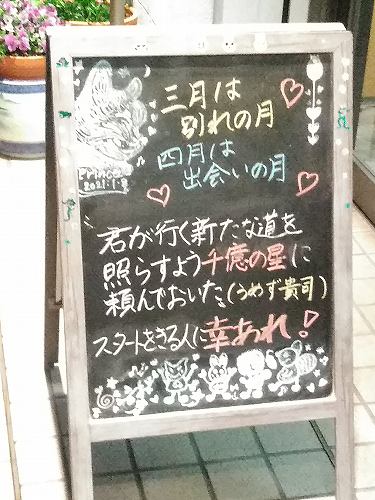 三月は
別れの月
四月は
出会いの月
PRINCESS
2021.1.9
君が行く新たな道を
照らすよう千億の星に
頼んでおいた(うめず貴司)
スタートをきる人に幸あれ!